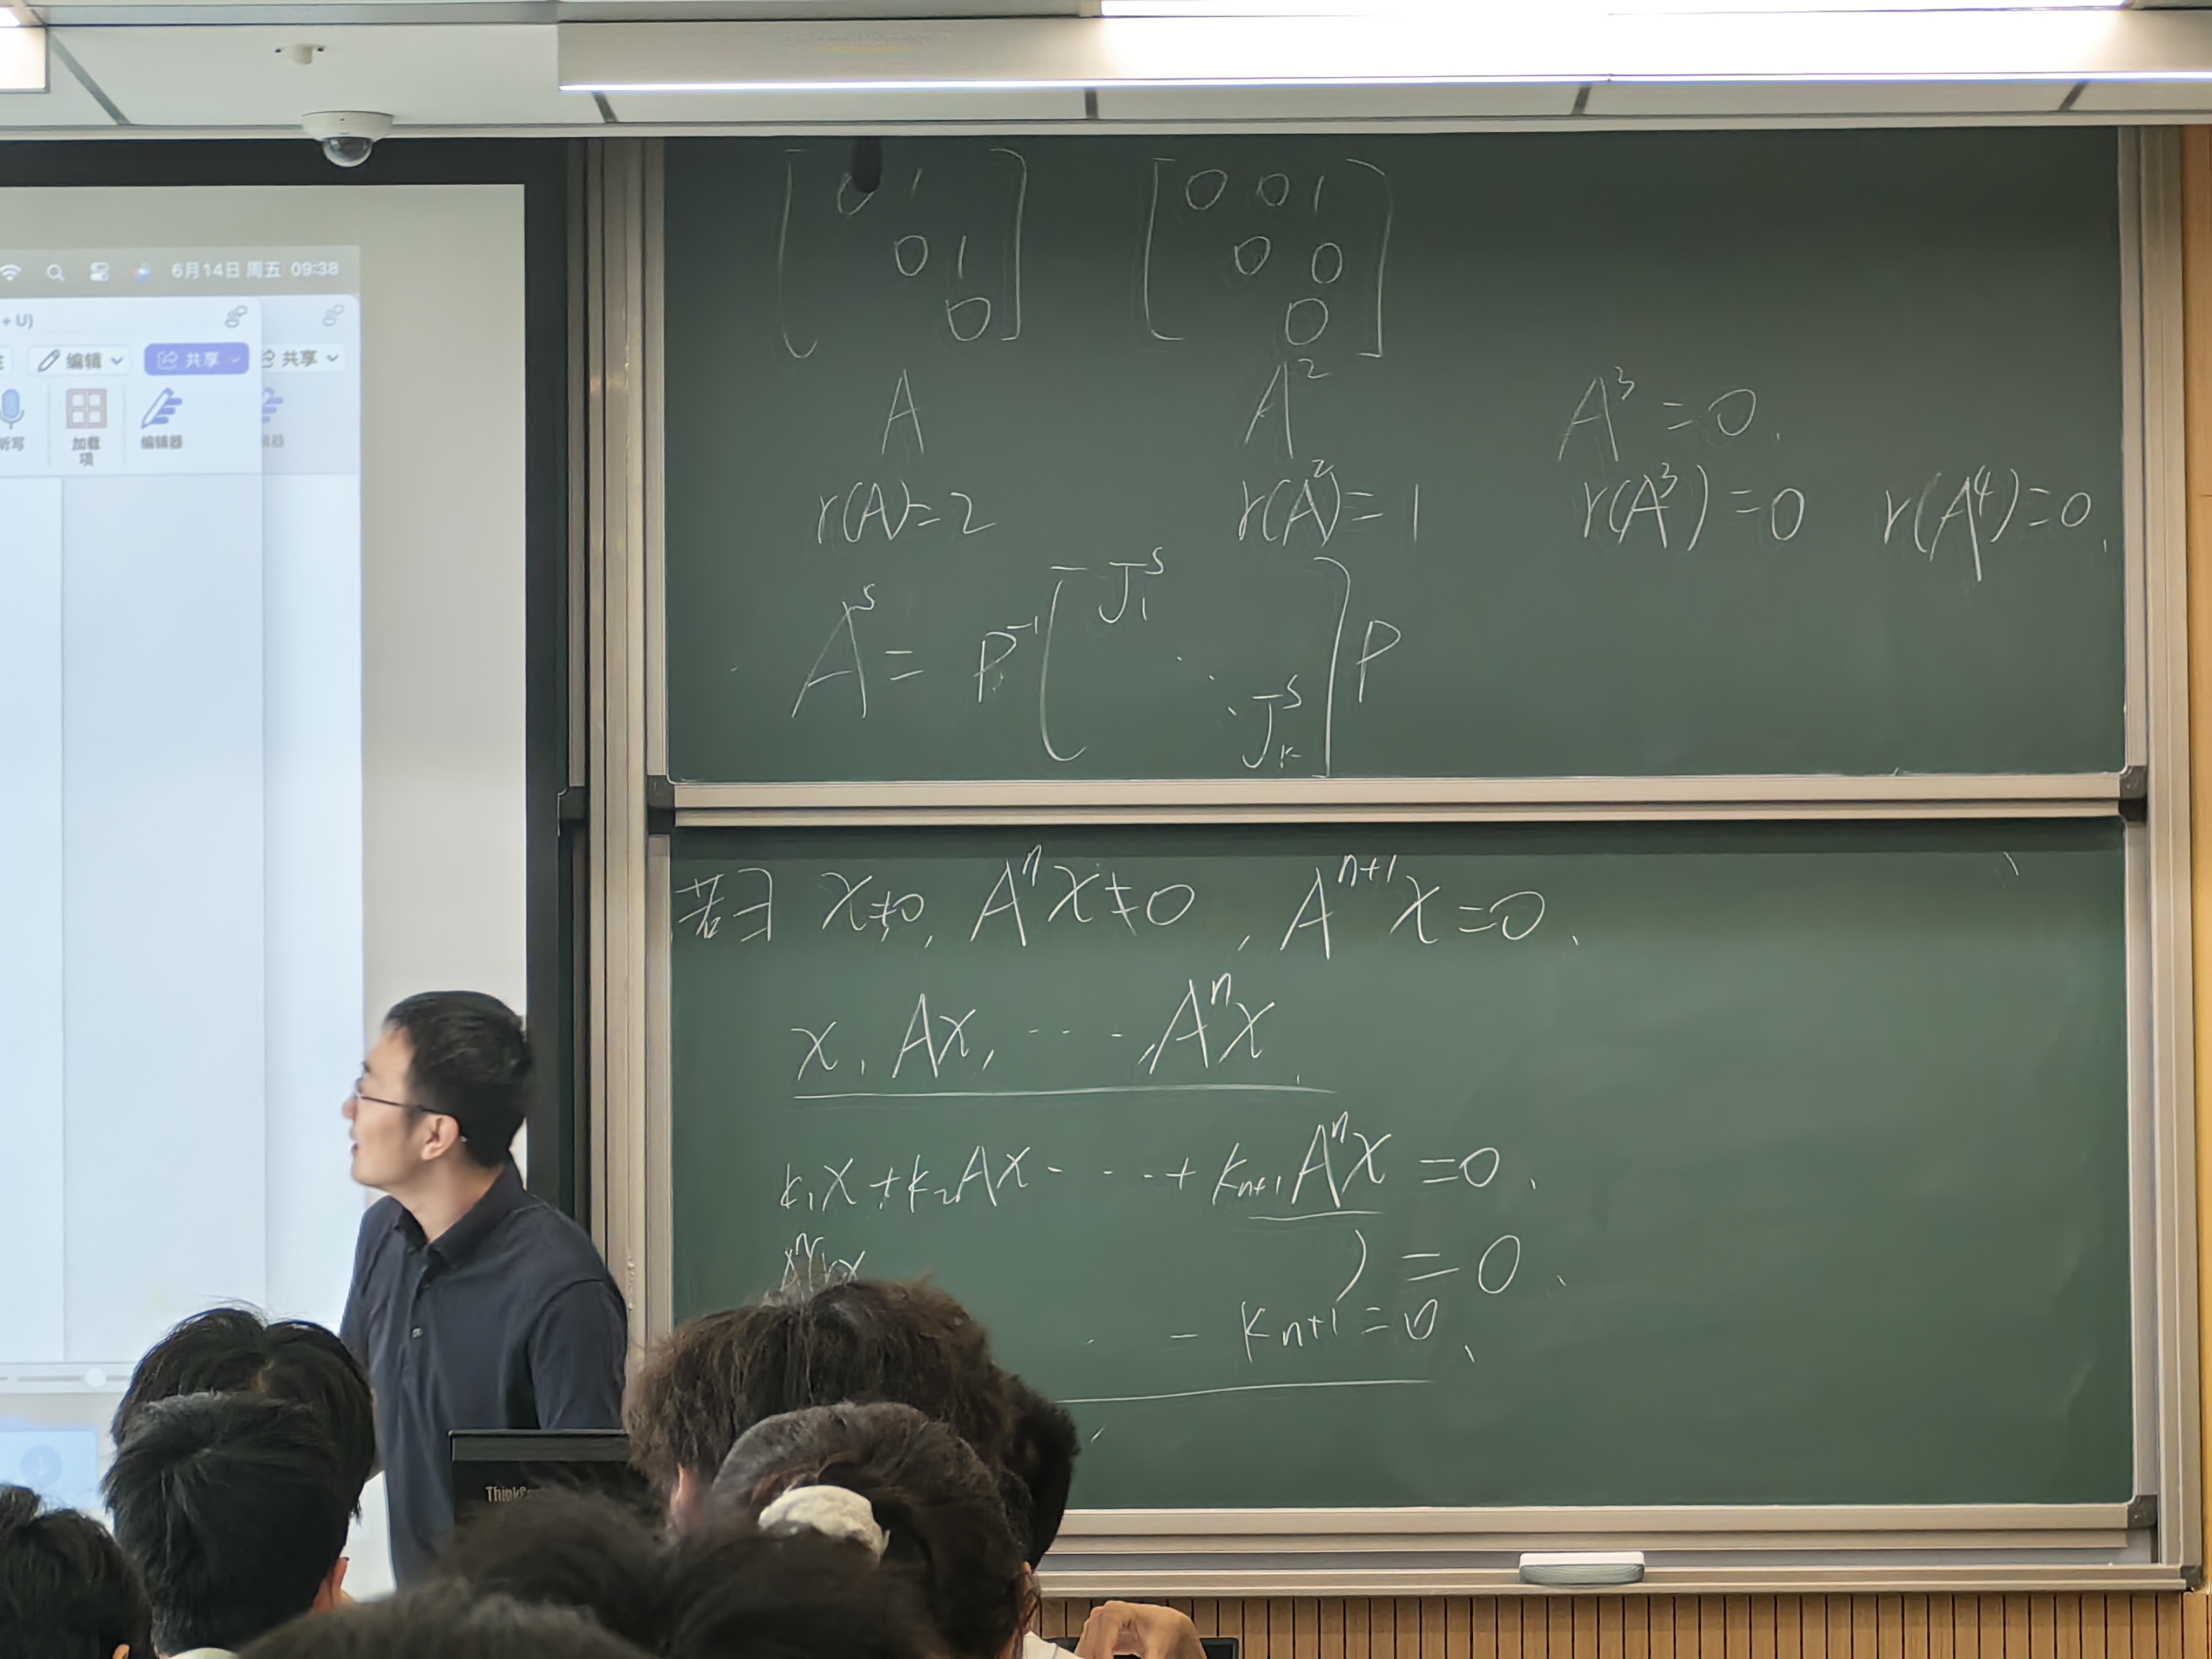 6月14日 周五 09:38
+ U)
编辑 共享 共享
听写 加载项 编辑器
0 1 0 0 1
0 1 0 0
0 0
A A² A³ = 0.
r(A)=2 r(A²)=1 r(A³)=0 r(A⁴)=0.
Aˢ = P⁻¹ [J₁ˢ ⋱ Jₖˢ] P
若∃ x≠0, Aⁿx≠0, Aⁿ⁺¹x=0.
x, Ax, ..., Aⁿx.
k₁x+k₂Ax...+kₙ₊₁Aⁿx=0.
)=0.
- kₙ₊₁=0.